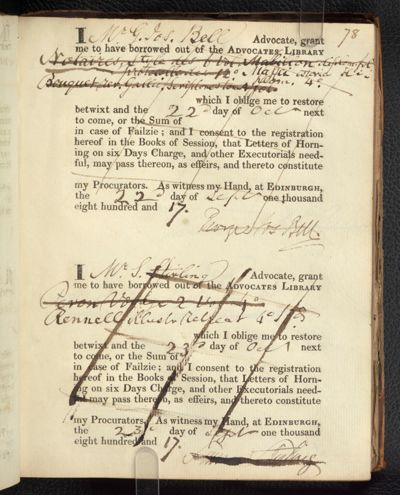 78
I Mr G. Jos. Bell Advocate, grant
me to have borrowed out of the ADVOCATES LIBRARY
Notaires, Style des 2 tom, Mabillon
12o Maffei
Bouquet, Scriptores
which I oblige me to restore
betwixt and the 22d day of Oct next
to come, or the Sum of
in case of Failzie; and I consent to the registration
hereof in the Books of Session, that Letters of Horn-
ing on six Days Charge, and other Executorials need-
ful, may pass thereon, as effeirs, and thereto constitute
my Procurators. As witness my Hand, at EDINBURGH,
the 22d day of Sept one thousand
eight hundred and 17.
George Jos Bell.
I Mr S. Stirling Advocate, grant
me to have borrowed out of the ADVOCATES LIBRARY
2 4o
Rennell Illustr Retreat 4o
which I oblige me to restore
betwixt and the 23d day of Oct next
to come, or the Sum of
in case of Failzie; and I consent to the registration
hereof in the Books of Session, that Letters of Horn-
ing on six Days Charge, and other Executorials need-
ful, may pass thereon, as effeirs, and thereto constitute
my Procurators. As witness my Hand, at EDINBURGH,
the 23d day of Sept one thousand
eight hundred and 17.
Stirling